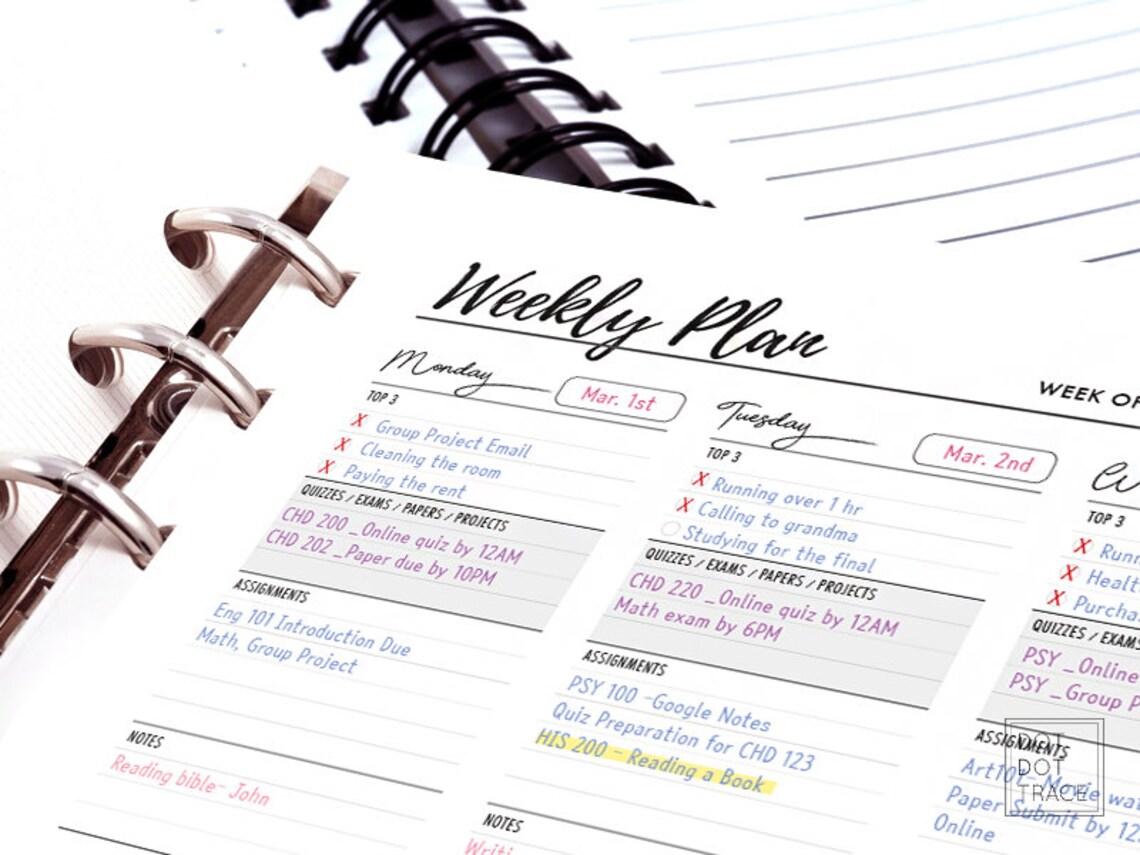 Weekly Plan
WEEK OF
Monday
Mar. 1st
TOP 3
X Group Project Email
X Cleaning the room
X Paying the rent
QUIZZES / EXAMS / PAPERS / PROJECTS
CHD 200 _Online quiz by 12AM
CHD 202 _ Paper due by 10PM
ASSIGNMENTS
Eng 101 Introduction Due
Math, Group Project
NOTES
Reading bible- John
Tuesday
Mar. 2nd
TOP 3
X Running over 1 hr
X Calling to grandma
Studying for the final
QUIZZES / EXAMS / PAPERS / PROJECTS
CHD 220 _Online quiz by 12AM
Math exam by 6PM
ASSIGNMENTS
PSY 100 -Google Notes
Quiz Preparation for CHD 123
HIS 200 - Reading a Book
NOTES
TOP 3
X
X
X
QUIZZES / EXAMS
PSY _Online
PSY _Group
ASSIGNMENTS
Art101- Movie
Paper Submit by
Online
DOT
DOT
TRACE